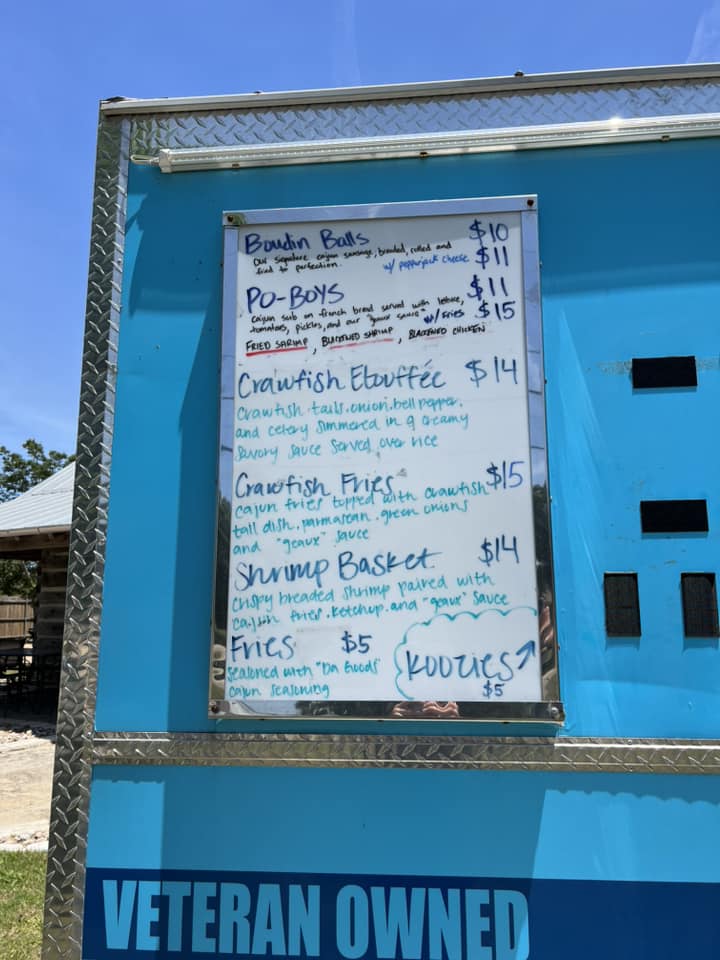 Boudin Balls $10
Our signature cajun sausage, breaded, rolled and
fried to perfection. w/ pepperjack cheese $11
PO-BOYS $11
cajun sub on french bread served with lettuce,
tomatoes, pickles, and our "geaux sauce" w/ Fries $15
FRIED SHRIMP, BLACKENED SHRIMP, BLACKENED CHICKEN
Crawfish Etouffée $14
Crawfish tails, onion, bell pepper,
and celery simmered in a creamy
savory sauce served over rice
Crawfish Fries $15
cajun fries topped with crawfish
tail dish, parmasean, green onions
and "geaux" sauce
Shrimp Basket $14
crispy breaded shrimp paired with
cajun fries, ketchup, and "geaux" sauce
Fries $5
seasoned with "Da Goods"
cajun seasoning
KOOZIES
$5
VETERAN OWNED